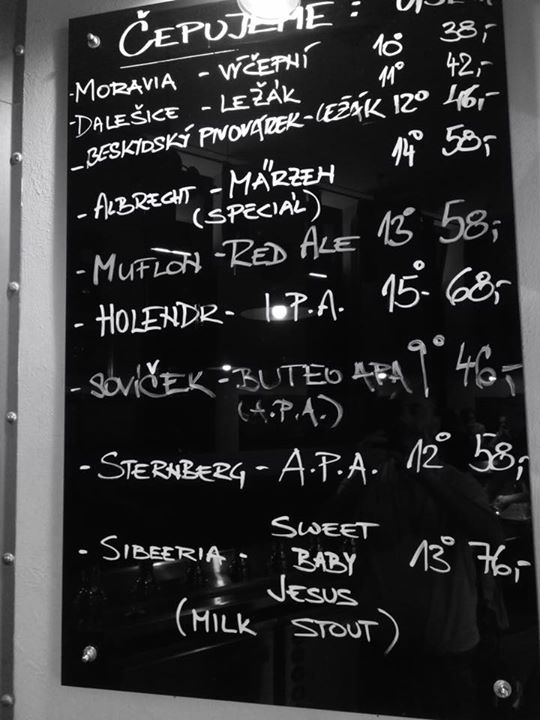 ČEPUJEME :
-MORAVIA - VÝČEPNÍ 10° 38,-
-DALEŠICE - LEŽÁK 11° 42,-
-BESKYDSKÝ PIVOVÁREK-LEŽÁK 12° 46,-
-ALBRECHT -MÄRZEN 14° 58,-
(SPECIÁL)
-MUFLON -RED ALE 13° 58,-
-HOLENDR- I.P.A. 15°- 68,-
-SOVÍČEK -BUTEO APA 9° 46,-
(A.P.A.)
-STERNBERG - A.P.A. 12° 58,-
-SIBEERIA - SWEET
BABY 13° 76,-
JESUS
(MILK STOUT)